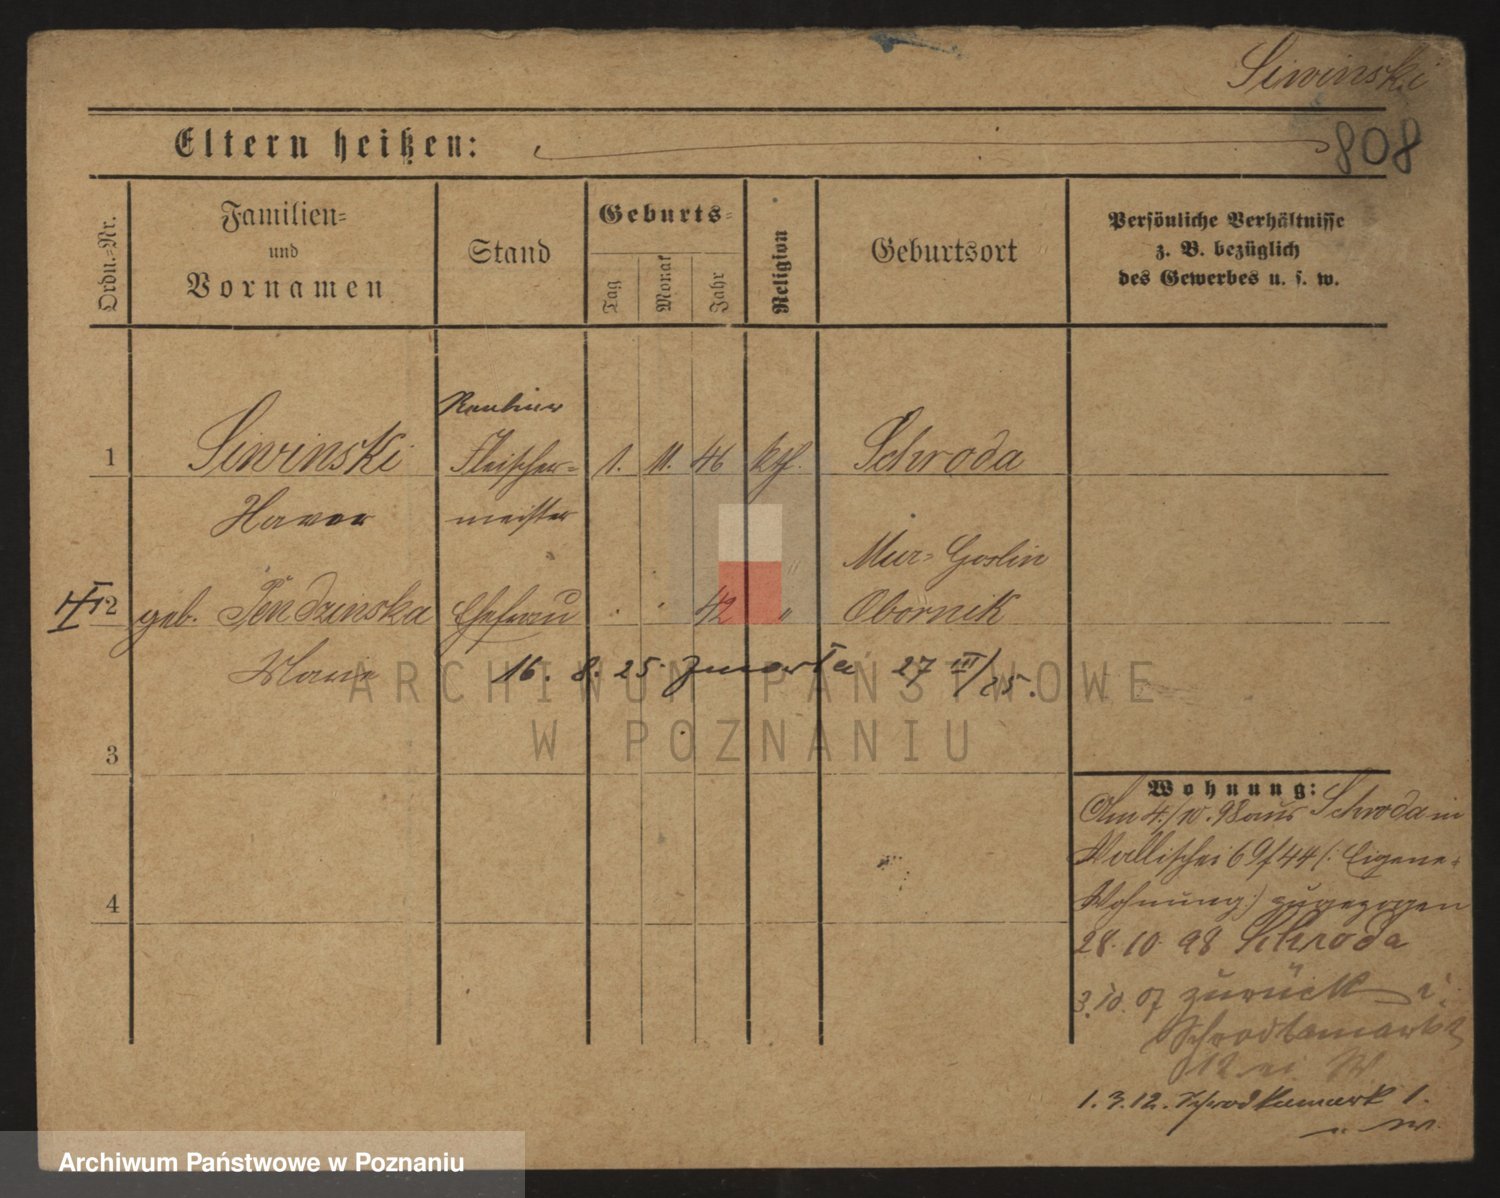 Siwinski
808
Eltern heißen:
Ordn.-Nr.
Familien-
und
Vornamen
Stand
Geburts-
Tag
Monat
Jahr
Religion
Geburtsort
Persönliche Verhältnisse
z. B. bezüglich
des Gewerbes u. s. w.
Rentier
1 Siwinski Fleischer- 1. 11. 46 kth. Schroda
meister
Mur-Goslin
2 geb. Pendzinska Ehefrau 42 " Obornik
16. 8. 25 zmarła 27 III/25.
3
4
Wohnung:
Am 4./10. 98 aus Schroda in
Wallischei 69/44 (: Eigene-
Wohnung :) zugezogen
28. 10 98 Schroda
3. 10. 07 zurück
1. 3. 12. Schrodkamark 1.
ARCHIWUM PAŃSTWOWE
W POZNANIU
Archiwum Państwowe w Poznaniu